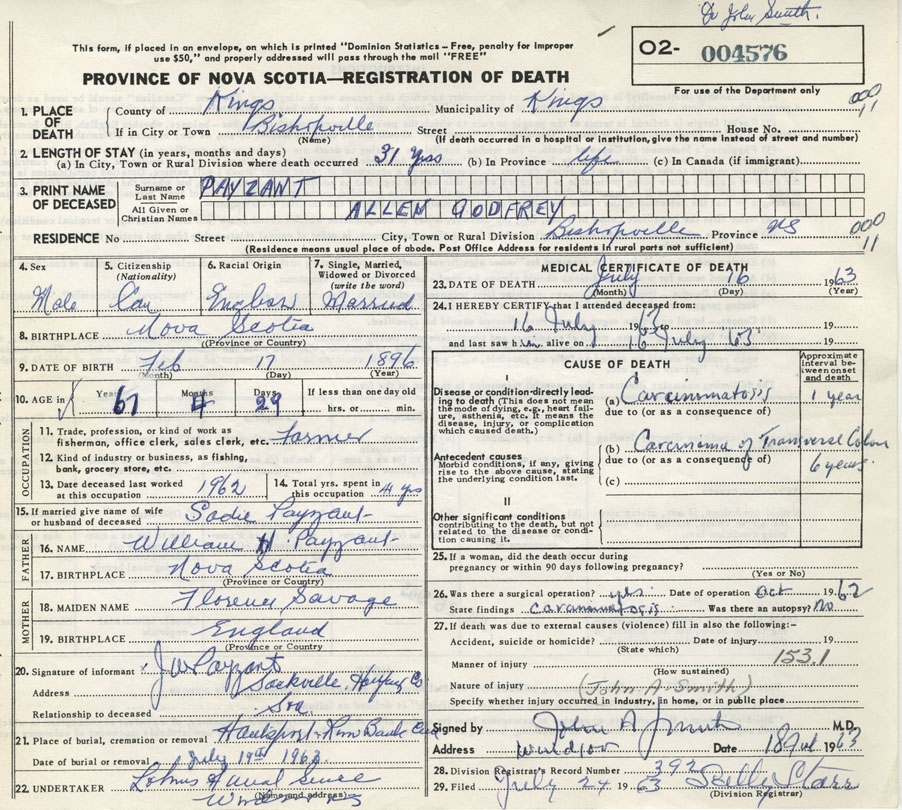 Dr John Smith.
This form, if placed in an envelope, on which is printed "Dominion Statistics – Free, penalty for improper
use $50," and properly addressed will pass through the mail "FREE"
O2- 004576
For use of the Department only
PROVINCE OF NOVA SCOTIA—REGISTRATION OF DEATH
1. PLACE OF DEATH
County of Kings Municipality of Kings
000
11
If in City or Town Bishopville Street House No.
(Name) (If death occurred in a hospital or institution, give the name instead of street and number)
2. LENGTH OF STAY (in years, months and days)
(a) In City, Town or Rural Division where death occurred 31 yrs (b) In Province life (c) In Canada (if immigrant)
3. PRINT NAME OF DECEASED
Surname or Last Name PAYZANT
All Given or Christian Names ALLEN GODFREY
RESIDENCE No Street City, Town or Rural Division Bishopville Province NS
000
11
(Residence means usual place of abode. Post Office Address for residents in rural parts not sufficient)
4. Sex Male
5. Citizenship (Nationality) Can
6. Racial Origin English
7. Single, Married, Widowed or Divorced (write the word) Married
8. BIRTHPLACE Nova Scotia
(Province or Country)
9. DATE OF BIRTH Feb 17 1896
(Month) (Day) (Year)
10. AGE in Years 67 Months 4 Days 29 If less than one day old hrs. or min.
OCCUPATION
11. Trade, profession, or kind of work as
fisherman, office clerk, sales clerk, etc. Farmer
12. Kind of industry or business, as fishing,
bank, grocery store, etc.
13. Date deceased last worked at this occupation 1962
14. Total yrs. spent in this occupation 41 yrs
15. If married give name of wife or husband of deceased Sadie Payzant
FATHER
16. NAME William H. Payzant
17. BIRTHPLACE Nova Scotia
(Province or Country)
MOTHER
18. MAIDEN NAME Florence Savage
19. BIRTHPLACE England
(Province or Country)
20. Signature of informant J W Payzant
Address Sackville, Co
Relationship to deceased Son
21. Place of burial, cremation or removal Hantsport
Date of burial or removal July 19th 1963
22. UNDERTAKER
(Name and address)
MEDICAL CERTIFICATE OF DEATH
23. DATE OF DEATH July 16 1963
(Month) (Day) (Year)
24. I HEREBY CERTIFY that I attended deceased from:
16 July 19 19
and last saw him alive on 16 July '63 19
CAUSE OF DEATH
Approximate interval between onset and death
I
Disease or condition directly leading to death (This does not mean the mode of dying, e.g., heart failure, asthenia, etc. It means the disease, injury, or complication which caused death.)
(a) Carcinmatosis 1 year
due to (or as a consequence of)
Antecedent causes
Morbid conditions, if any, giving rise to the above cause, stating the underlying condition last.
(b) Carcinoma of Transverse Colon
due to (or as a consequence of) 6 years
(c)
II
Other significant conditions
contributing to the death, but not related to the disease or condition causing it.
25. If a woman, did the death occur during
pregnancy or within 90 days following pregnancy?
(Yes or No)
26. Was there a surgical operation? yes Date of operation Oct 1962
State findings carcinmatosis Was there an autopsy? No
27. If death was due to external causes (violence) fill in also the following:-
Accident, suicide or homicide? Date of injury 19
(State which)
Manner of injury 153.1
(How sustained)
Nature of injury (John A Smith)
Specify whether injury occurred in industry, in home, or in public place
Signed by John A Smith M.D.
Address Windsor Date 18 Jul 1963
28. Division Registrar's Record Number 392
29. Filed July 24 1963
(Division Registrar)